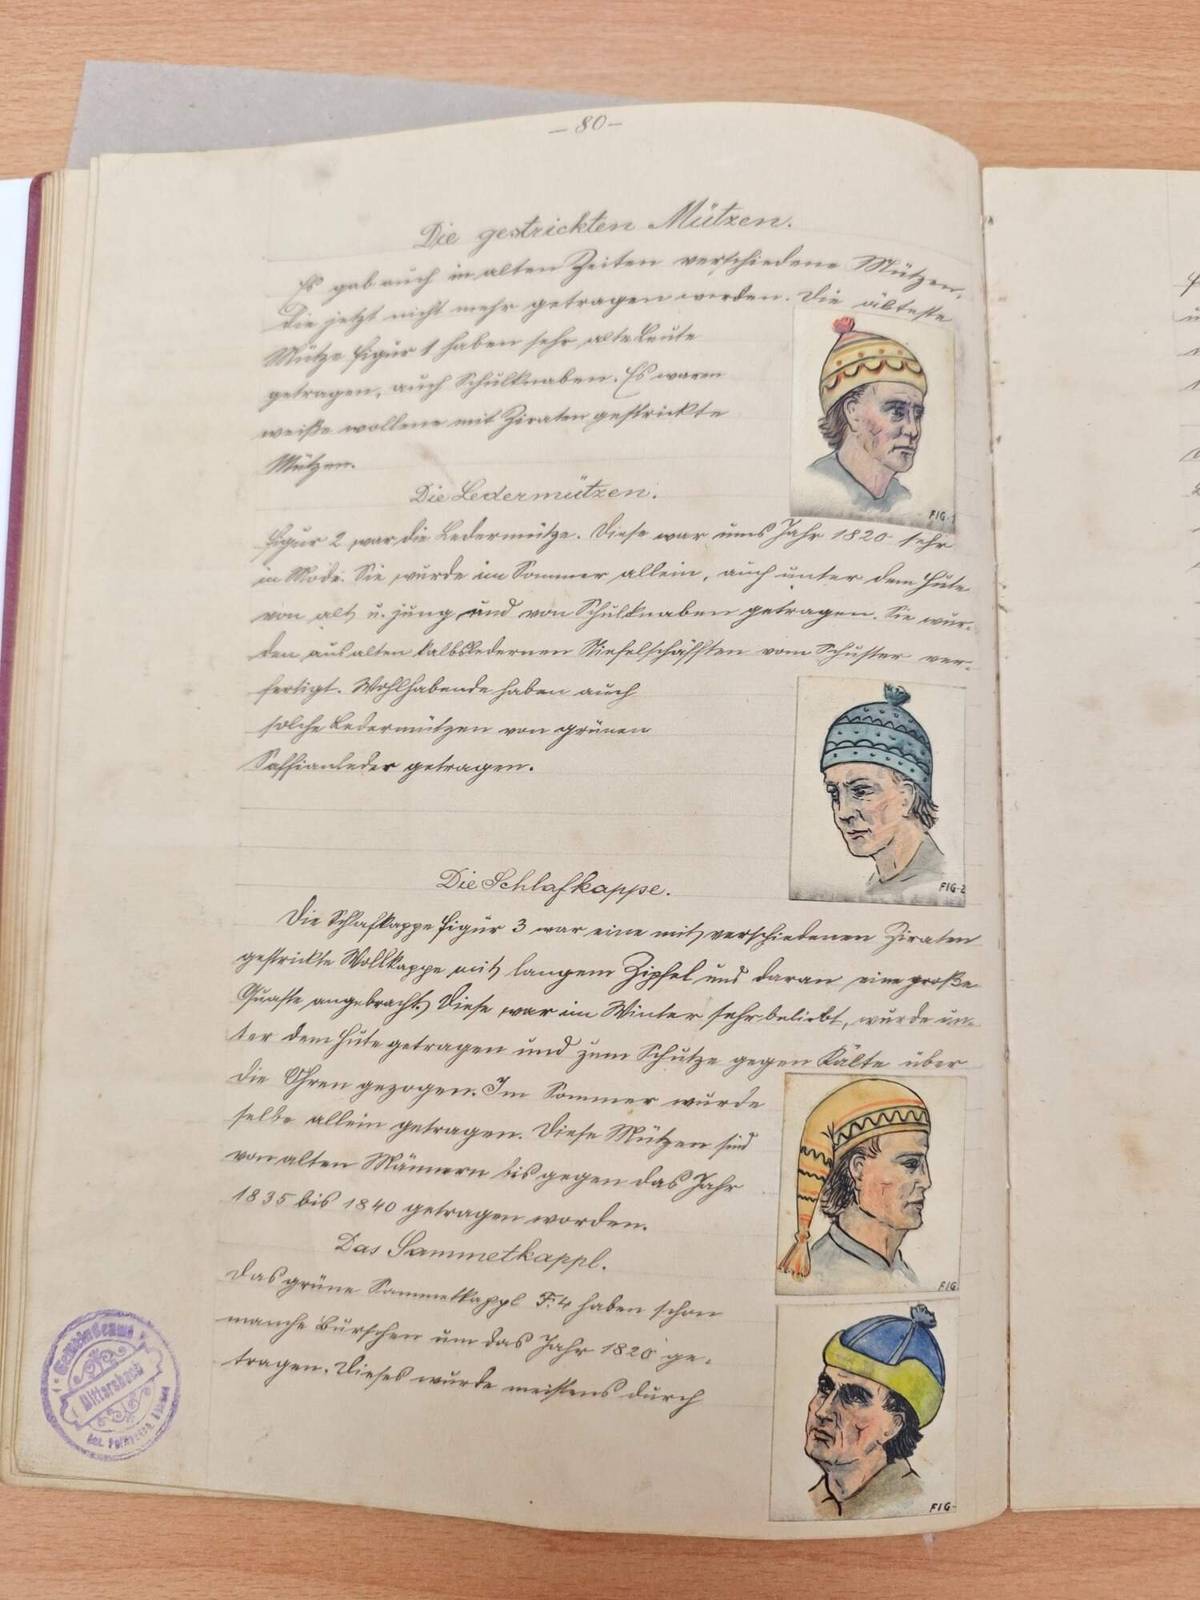 - 80 -
Die gestrickten Mützen.
Es gab auch in alten Zeiten verschiedene Mützen,
die jetzt nicht mehr getragen werden. Die älteste
Mütze Figur 1 haben sehr alte Leute
getragen, auch Schulknaben. Es waren
weiße wollene mit Ziraten gestrickte
Mützen.
FIG-1
Die Ledermützen.
Figur 2 war die Ledermütze. Diese war ums Jahr 1820 sehr
in Mode. Sie wurde im Sommer allein, auch unter dem Hute
von alt u. jung und von Schulknaben getragen. Sie wur-
den aus alten kalbsledernen Stiefelschäften vom Schuster ver-
fertigt. Wohlhabende haben auch
solche Ledermützen von grünen
Saffianleder getragen.
FIG-2
Die Schlafkappe.
Die Schlafkappe Figur 3 war eine mit verschiedenen Ziraten
gestrickte Wollkappe mit langem Zipfel und daran eine große
Quaste angebracht. Diese war im Winter sehr beliebt, wurde un-
ter dem Hute getragen und zum Schutze gegen Kälte über
die Ohren gezogen. Im Sommer wurde
selbe allein getragen. Diese Mützen sind
von alten Männern bis gegen das Jahr
1835 bis 1840 getragen worden.
FIG.
Das Sammetkappl.
Das grüne Sammetkappl F. 4 haben schon
manche Burschen um das Jahr 1820 ge-
tragen. Dieses wurde meistens durch
FIG-